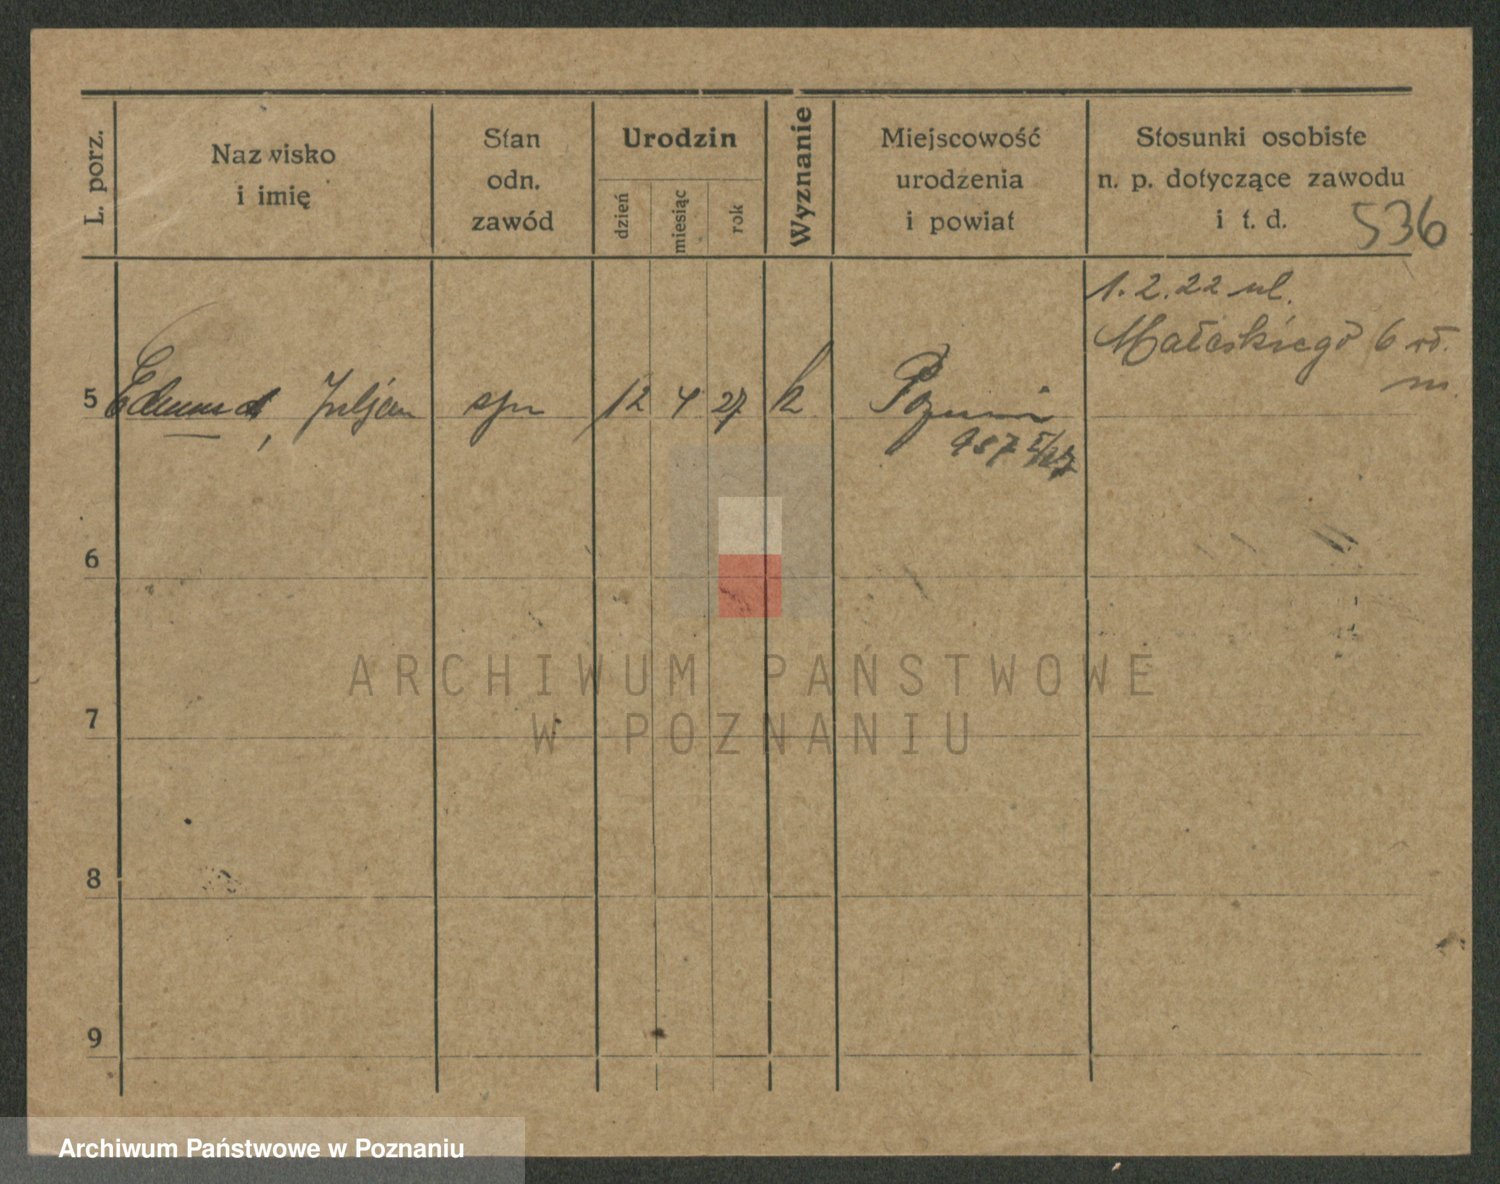 L. porz.
Nazwisko
i imię
Stan
odn.
zawód
Urodzin
dzień
miesiąc
rok
Wyznanie
Miejscowość
urodzenia
i powiat
Stosunki osobiste
n. p. dotyczące zawodu
i t. d.
536
1. 2. 22 ul.
Małeckiego 6
5 Edmund, Juljan syn 12 4 27 k Poznań
987
6
7
8
9
ARCHIWUM PAŃSTWOWE
W POZNANIU
Archiwum Państwowe w Poznaniu